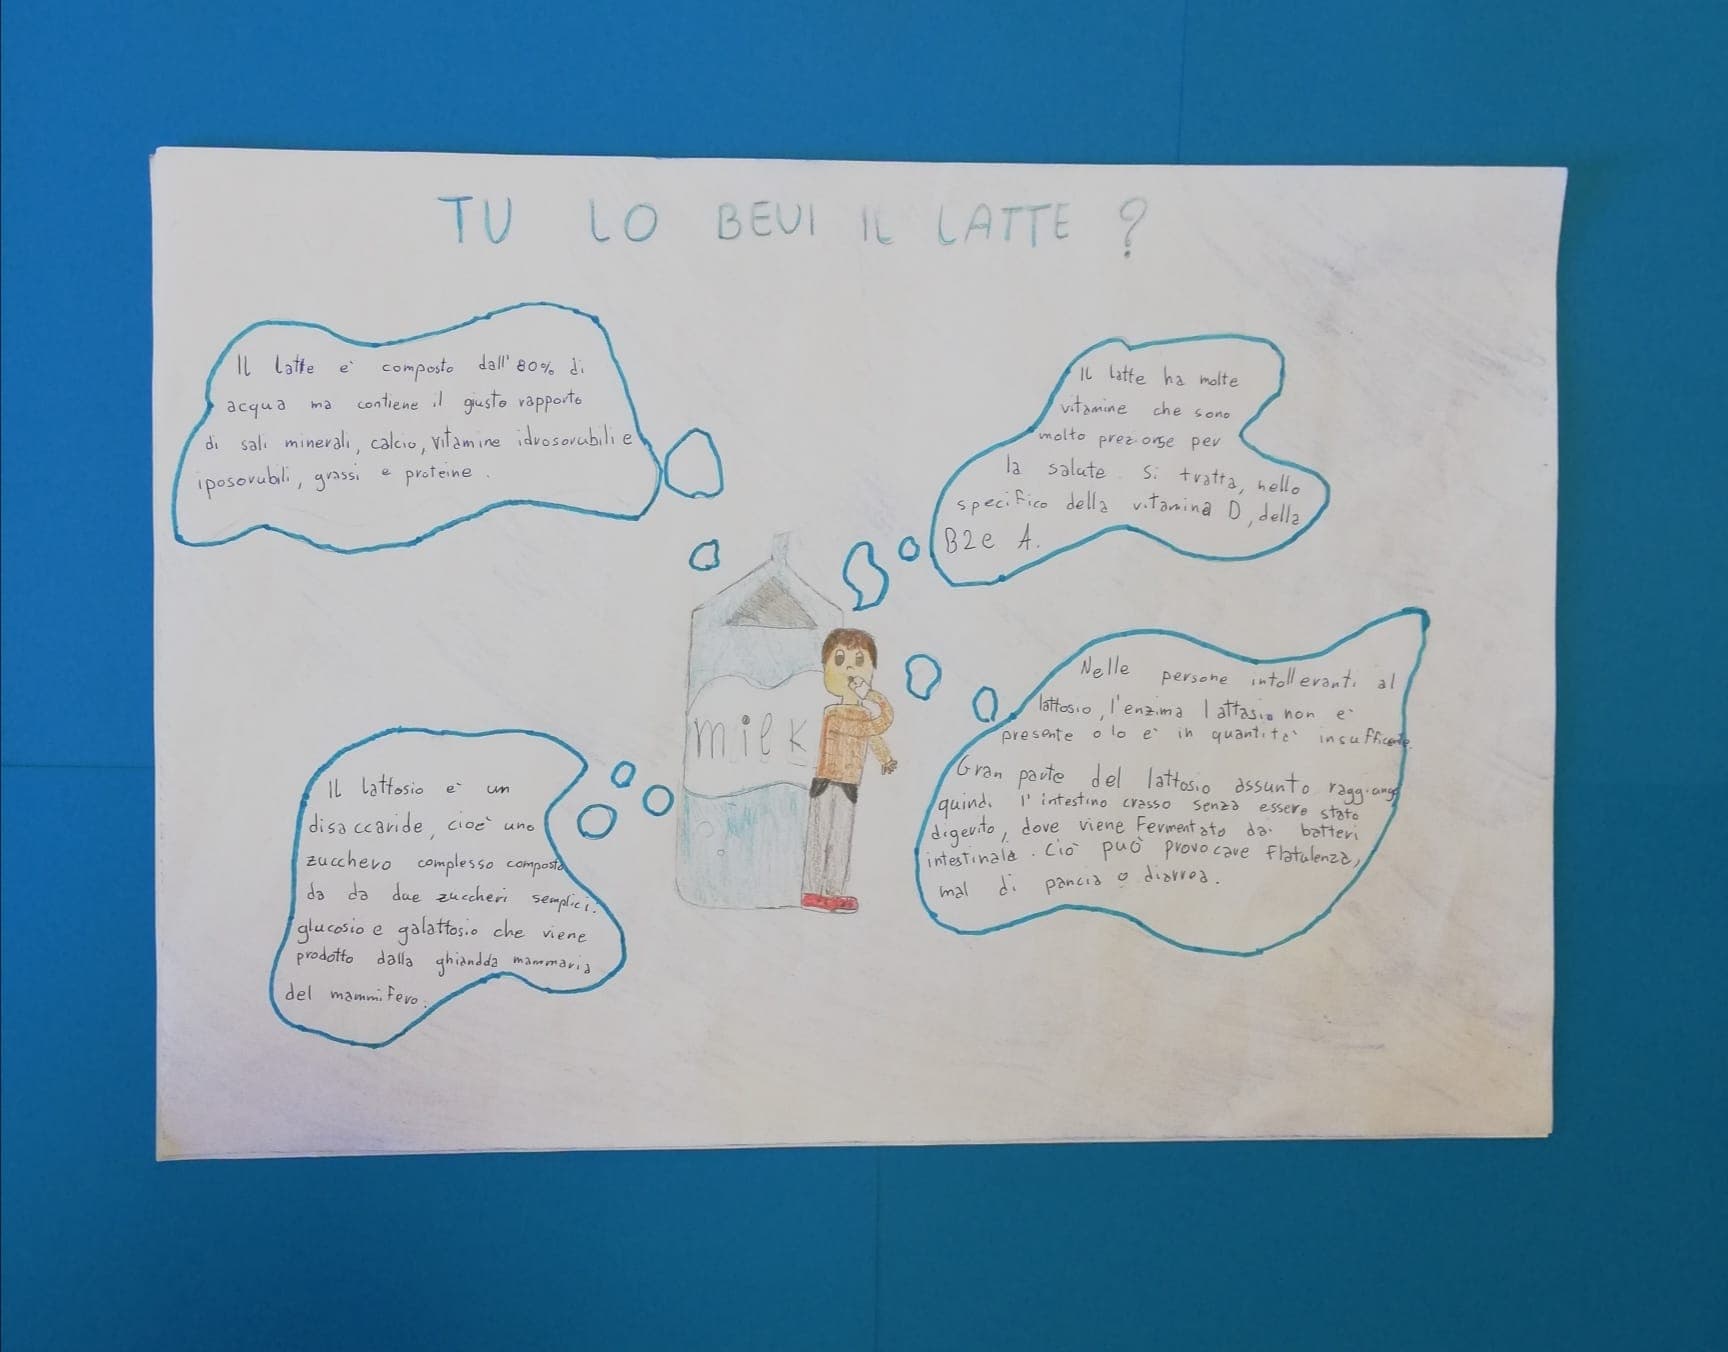 TU LO BEVI IL LATTE ?
Il latte è composto dall'80% di
acqua ma contiene il giusto rapporto
di sali minerali, calcio, vitamine idrosorubili e
iposorubili, grassi e proteine.
Il latte ha molte
vitamine che sono
molto preziorse per
la salute. Si tratta, nello
specifico della vitamina D, della
B2 e A.
milk
Nelle persone intolleranti al
lattosio, l'enzima lattasio non è
presente o lo è in quantità insufficente.
Gran parte del lattosio assunto raggiunge
quindi l'intestino crasso senza essere stato
digerito, dove viene Fermentato dai batteri
intestinale. Ciò può provocare flatulenza,
mal di pancia o diarrea.
Il lattosio è un
disaccaride, cioè uno
zucchero complesso composto
da da due zuccheri semplici:
glucosio e galattosio che viene
prodotto dalla ghiandda mammaria
del mammifero.